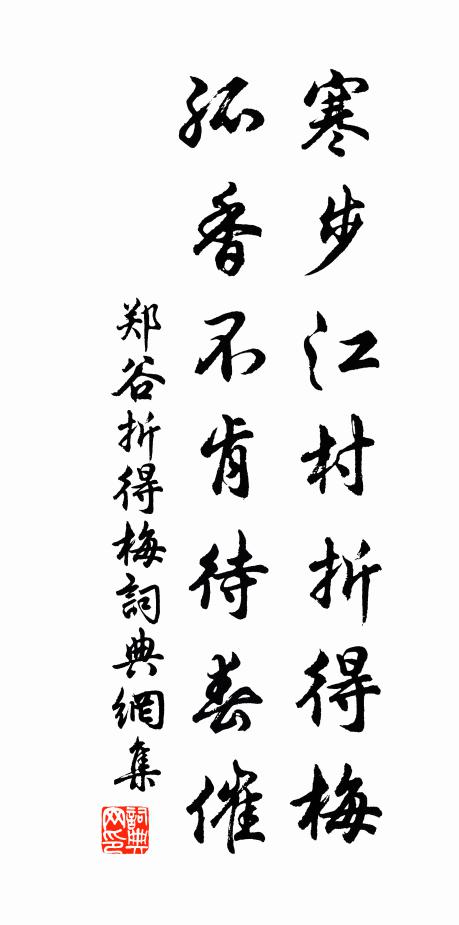 寒步江村折得梅
孤香不肯待春催
郑谷折得梅詞典網集
詞典網印